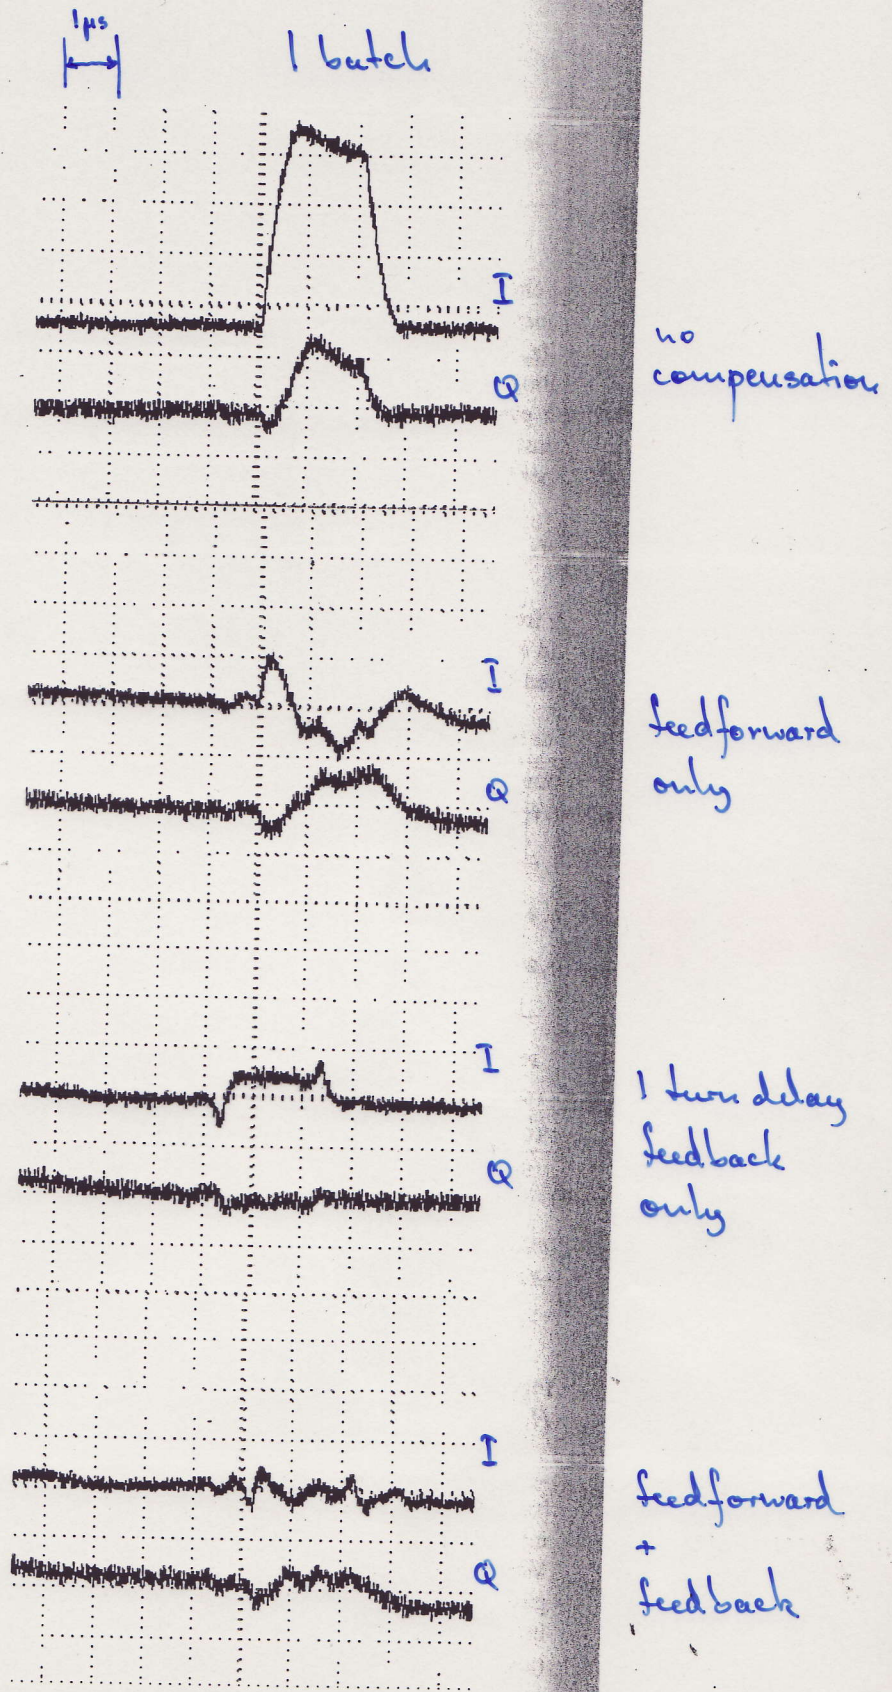 1μs
1 batch
I
Q
no
compensation
I
Q
feedforward
only
I
Q
1 turn delay
feedback
only
I
Q
feedforward
+
feedback